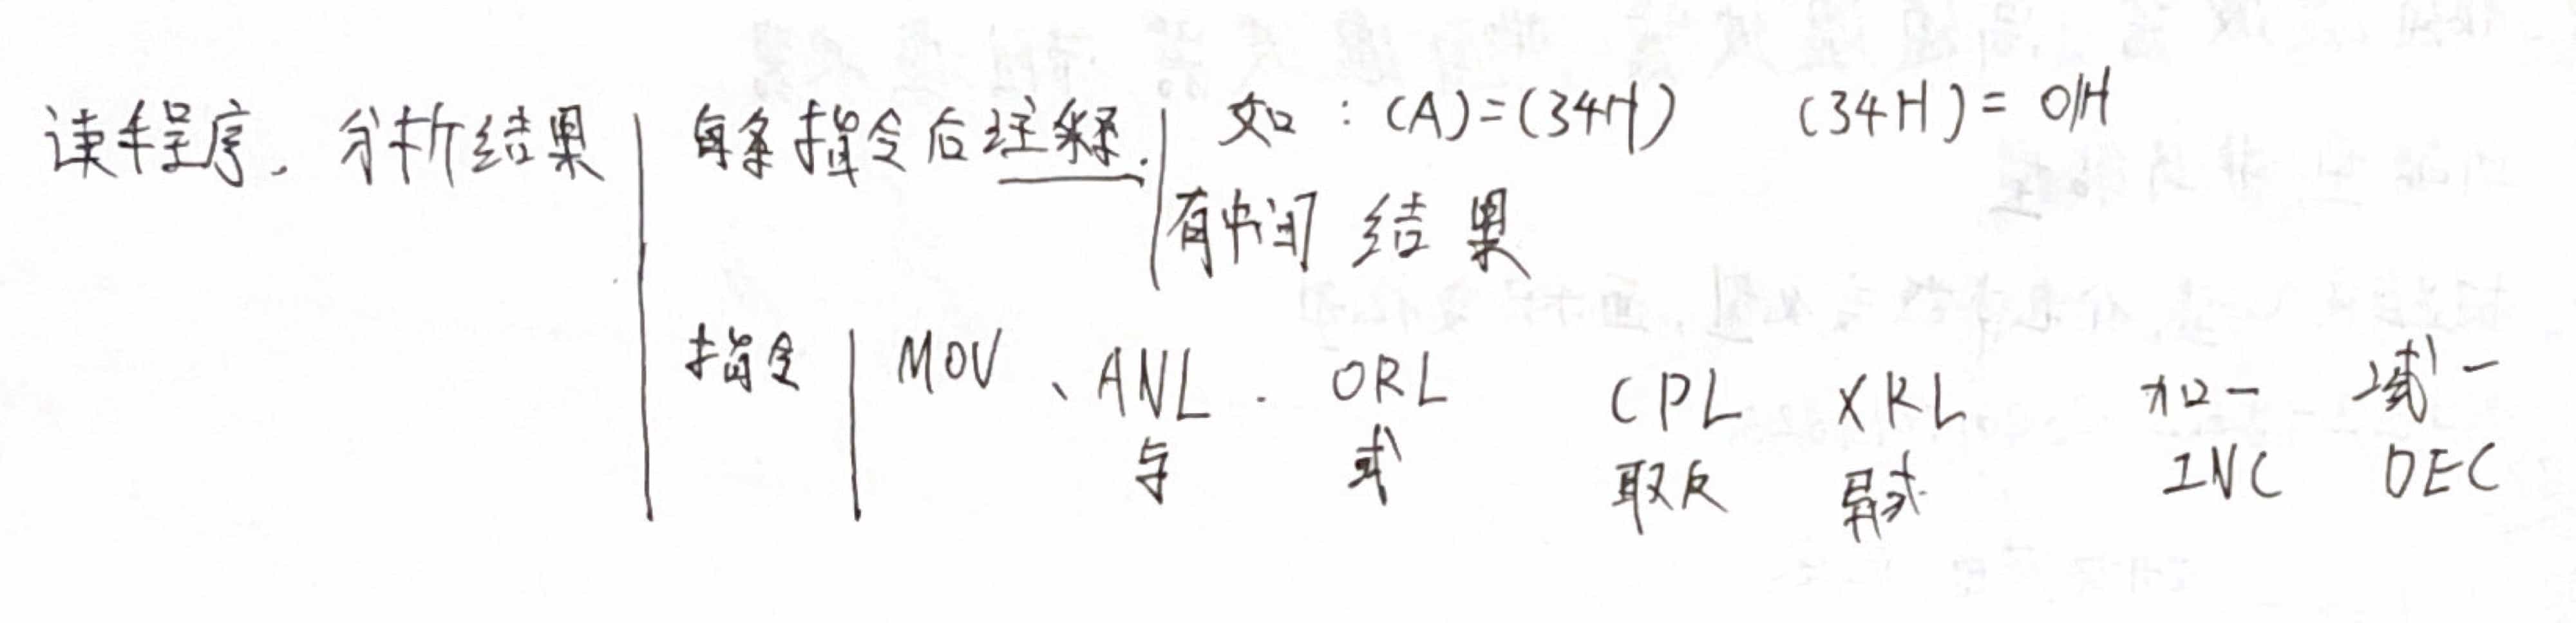 读程序,分析结果 每条指令后注释. 如:(A)=(34H) (34H)=01H
有中间结果
指令 MOV、ANL.ORL CPL XRL 加一 减一
与 或 取反 异或 INC DEC